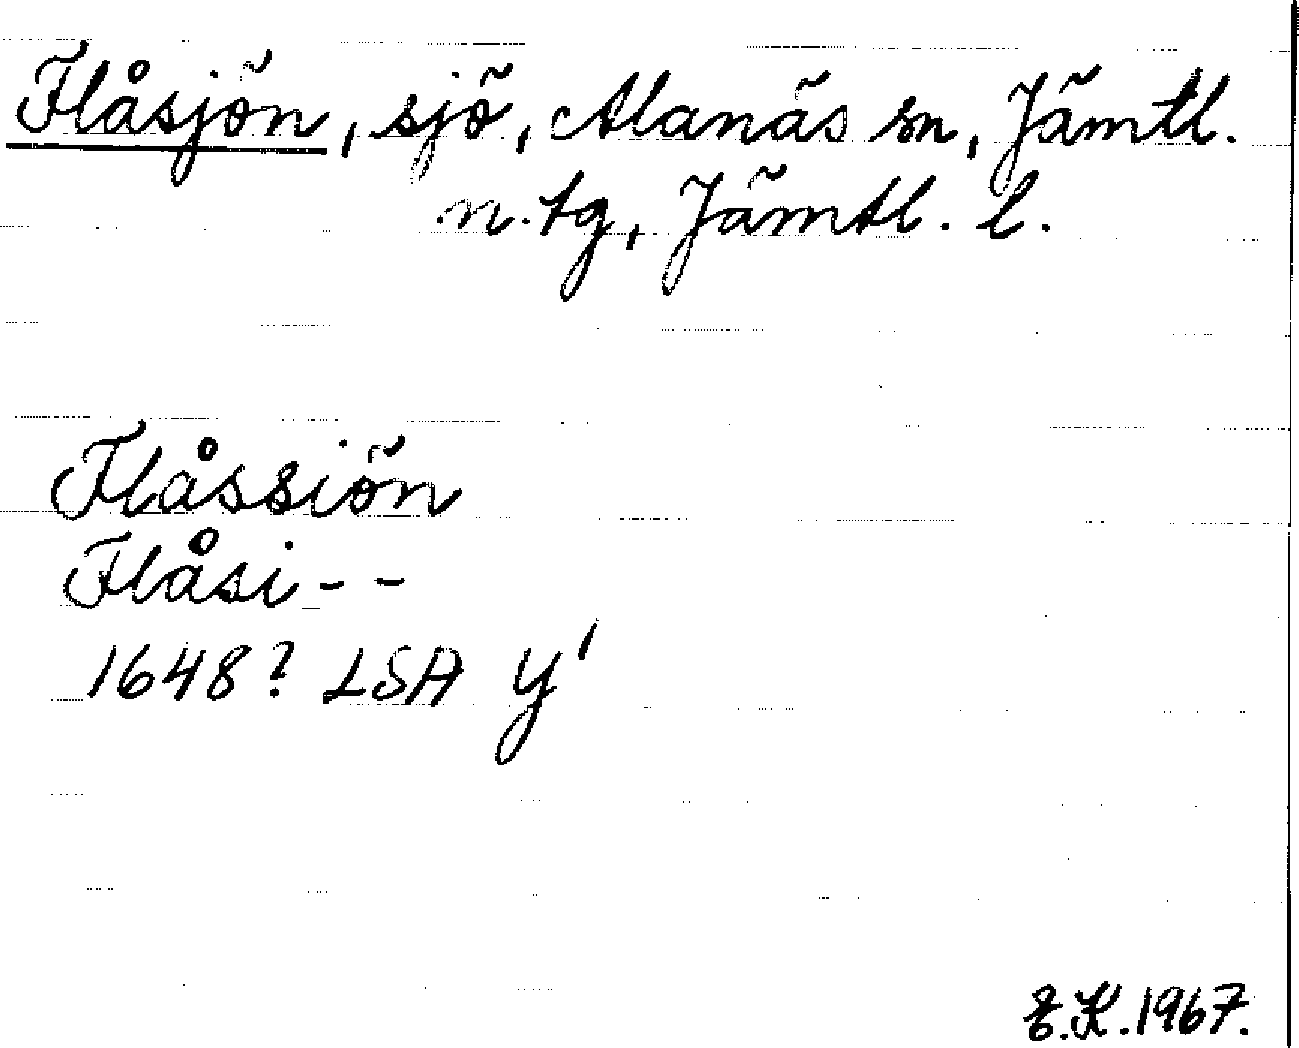 Flåsjön, sjö, Alanäs sn, Jämtl.
n. tg, Jämtl. l.
Flåssiön
Flåsi - -
1648? LSA y'
K. 1967.